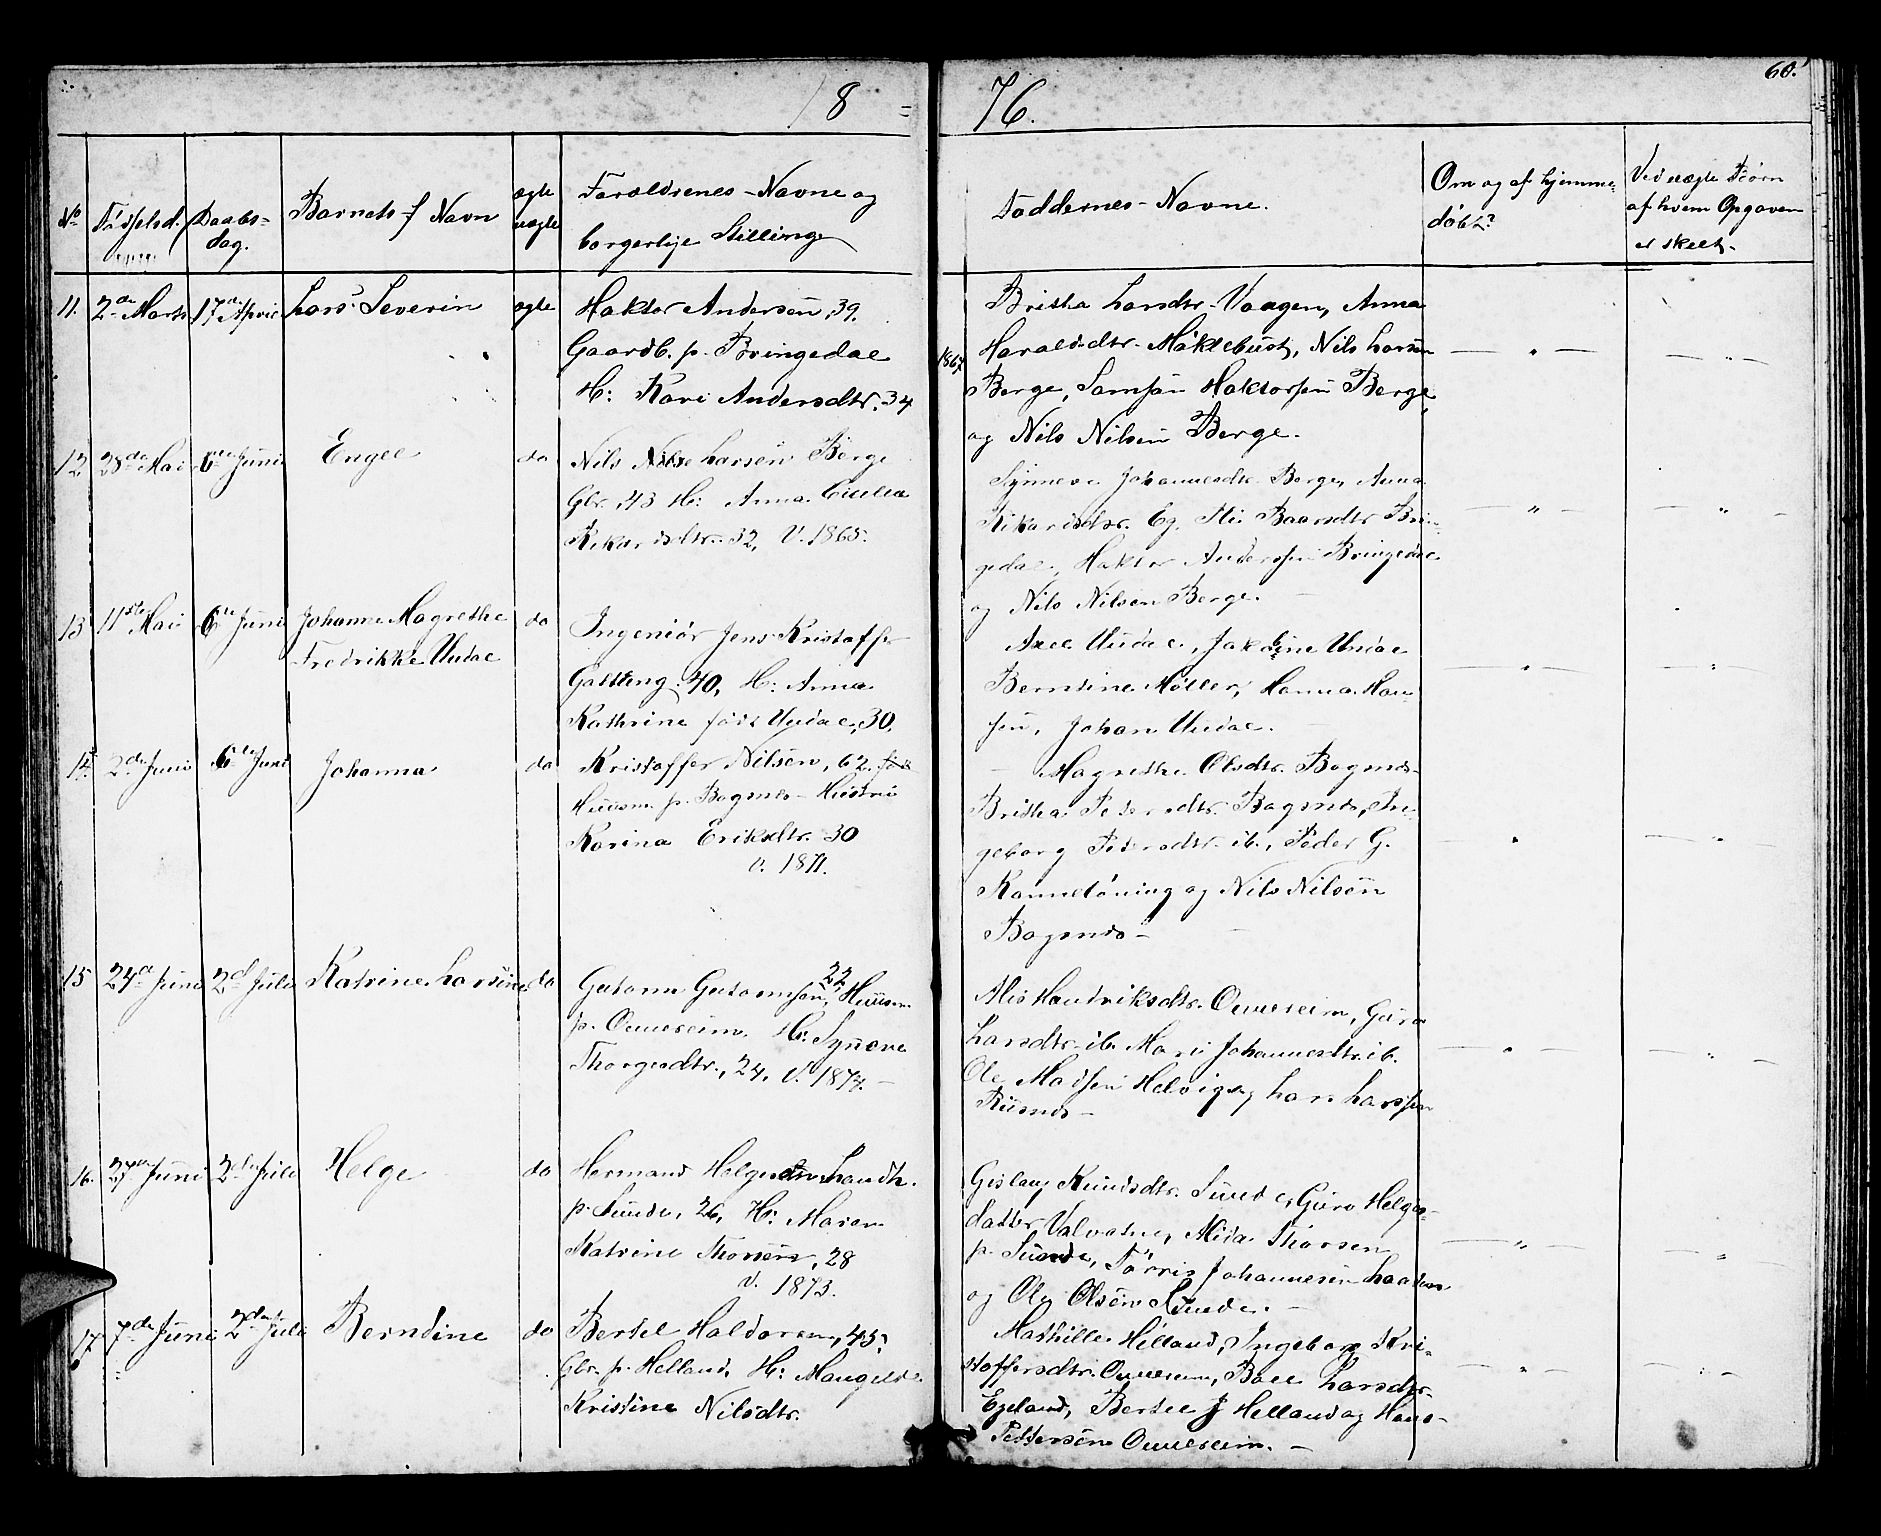 18 = 76.
60.
No
Fødselsd.
Daabs-
dag.
Barnets f Navn
ægte
uægte
Forældrenes Navne og
borgerlige Stilling
Faddernes Navne.
Om og af hjemme-
døbt?
Ved uægte Børn
af hvem Opgaven
er skeet.
11. 2den Marts 17de April Lars Severin ægte
Haktor Andersen, 39.
Gaardb. p. Bringedal
H: Kari Andersdtr. 34
1867
Britha Larsdtr. Vaagen, Anna
Haraldsdtr. Møklebust, Nils Larsen
Berge, Samson Haktorsen Berge
og Nils Nilsen Berge.
12 28de Mai 6te Juni Engel do
Nils Larsen Berge
Gbr. 43 H: Anna Cicilia
Rikardsdtr. 32, V. 1865.
Synneve Johannesdtr Berge, Anna
Rikardsdtr. Eg, Baardsdtr Brin-
gedal, Haktor Andersen Bringedal
og Nils Nilsen Berge.
13 11te Mai 6te Juni Johanne Magrethe do
Fredrikke Undal
Ingeniör Jens Kristoffer
40, H: Anna
Kathrine født Undal, 30.
Axel Undal, Undal
Berntine Møller, Hanna Han-
sen, Johan Undal.
14. 2den Juni 6te Juni Johanna do
Kristoffer Nilsen, 62.
Huusm. p. Bognes Hustru
Karina Eriksdtr. 30
v. 1871.
Magrethe Olsdtr. Bognes
Britha Pedersdtr. Bognes, In-
geborg Pedersdtr. ib., Peder G.
og Nils Nilsen
Bognes
15 24de Juni 2den Juli Katrine Larsine do
Gutorm Gutormsen, 22, Huusm
p. Omereim. H: Synneve
Thorgersdtr., 24, V. 1874.
Alis Hendriksdtr. Omereim, Guro
Larsdtr. ib. Mari Johannesdtr. ib.
Ole Madsen Helvig og Lars Larsen
16. 27de Juni 2den Juli Helge do
Hermand Helgesen Landh.
p. Sunde, 26, H: Maren
Katrine Thorsen, 28
V. 1873.
Gislaug Knudsdtr. Sunde, Guro Helges-
datter Valvatne, Mida Thorsen
p. Sunde, Tørris Johannesen
og Ole Olsen Sunde.
17. 7de Juni 2den Juli Berndine do
Bertel Haldorsen, 45,
Gbr. p. Helland, H: Maugelde
Kristine Nilsdtr.
Mathilde Helland, Ingeborg Kri-
stoffersdtr. Omereim, Larsdtr.
Egeland, Bertel J Helland og Hans
Pettersen Omereim.